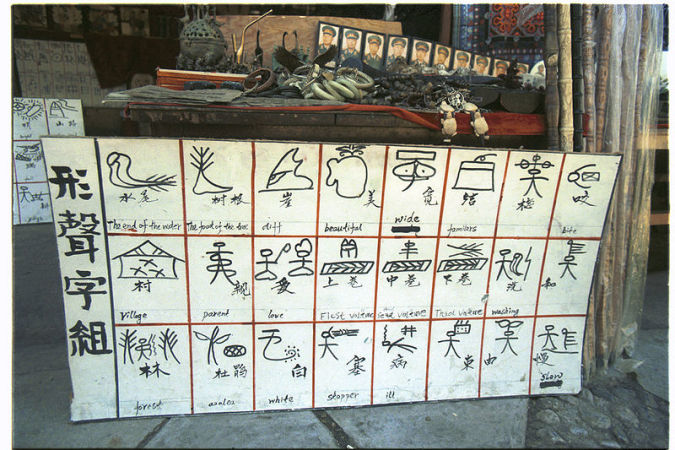 形聲字組
水尾 树根 崖 美 宽 结 桥 咬
The end of the water The food of the tree cliff beautiful wide familars bite
村 親 爱 上卷 中卷 下卷 洗 和
Village parent love First volume Third volume washing
林 杜鹃 白 塞 病 東 由 慢
forest azalea white stopper ill slow